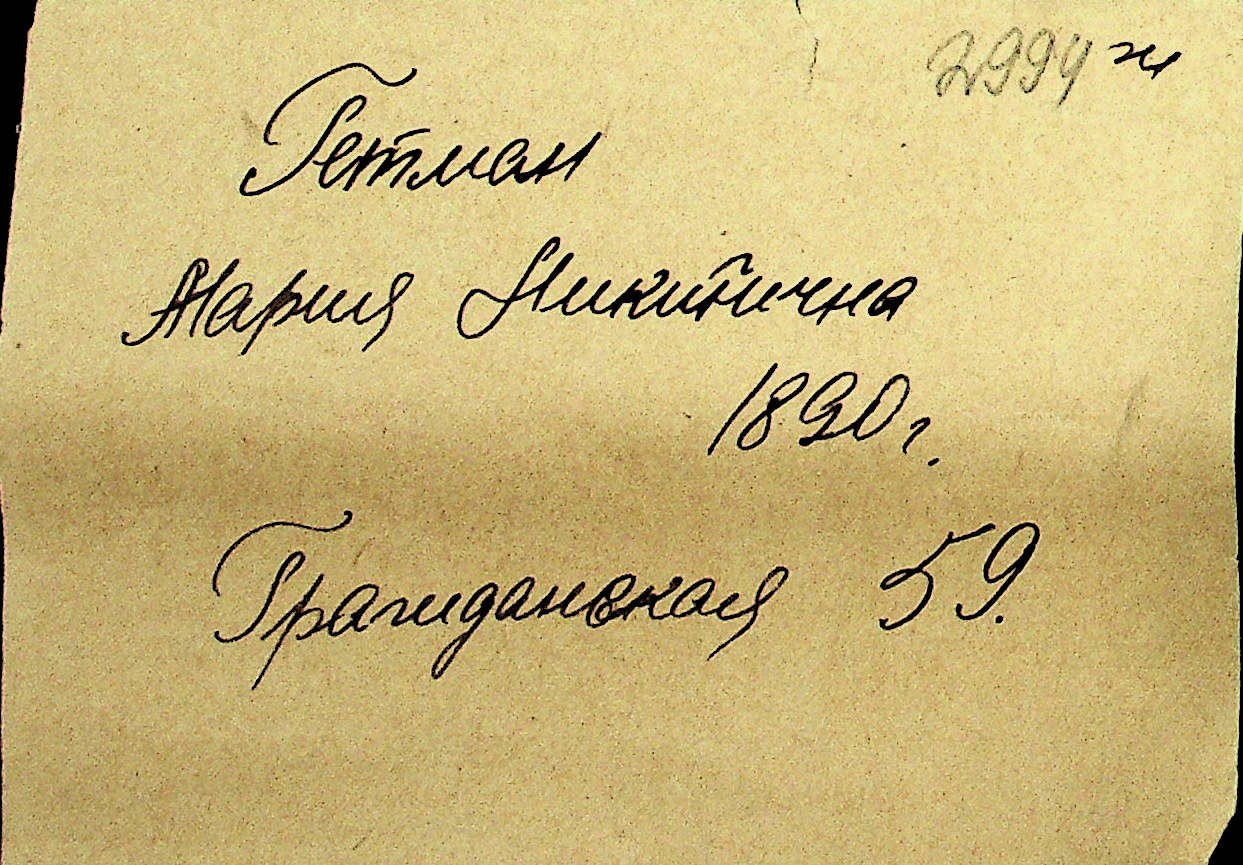 2994 ж
Гетман
Мария Никитична
1890 г.
Гражданская 59.